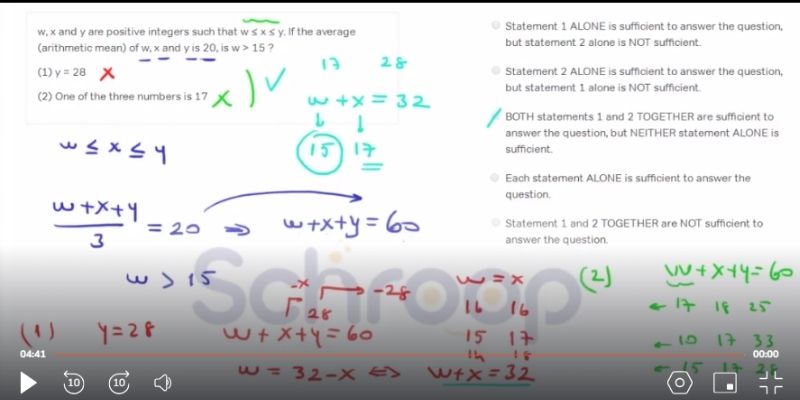 w, x and y are positive integers such that w ≤ x ≤ y. If the average
(arithmetic mean) of w, x and y is 20, is w > 15 ?
(1) y = 28 X
(2) One of the three numbers is 17 X ) ✓
17 28
w + x = 32
↓ ↓
15 17
w ≤ x ≤ y
w+x+y
3
= 20 ⇒ w+x+y = 60
w > 15
(1) y = 28
-x → -28
28
w + x + y = 60
w = 32 - x ⇔ w+x = 32
w = x
16 16
15 17
14 18
(2) w+x+y = 60
← 17 18 25
← 10 17 33
← 15 17 28
Statement 1 ALONE is sufficient to answer the question,
but statement 2 alone is NOT sufficient.
Statement 2 ALONE is sufficient to answer the question,
but statement 1 alone is NOT sufficient.
BOTH statements 1 and 2 TOGETHER are sufficient to
answer the question, but NEITHER statement ALONE is
sufficient.
Each statement ALONE is sufficient to answer the
question.
Statement 1 and 2 TOGETHER are NOT sufficient to
answer the question.
Schroop
04:41
00:00
10 10